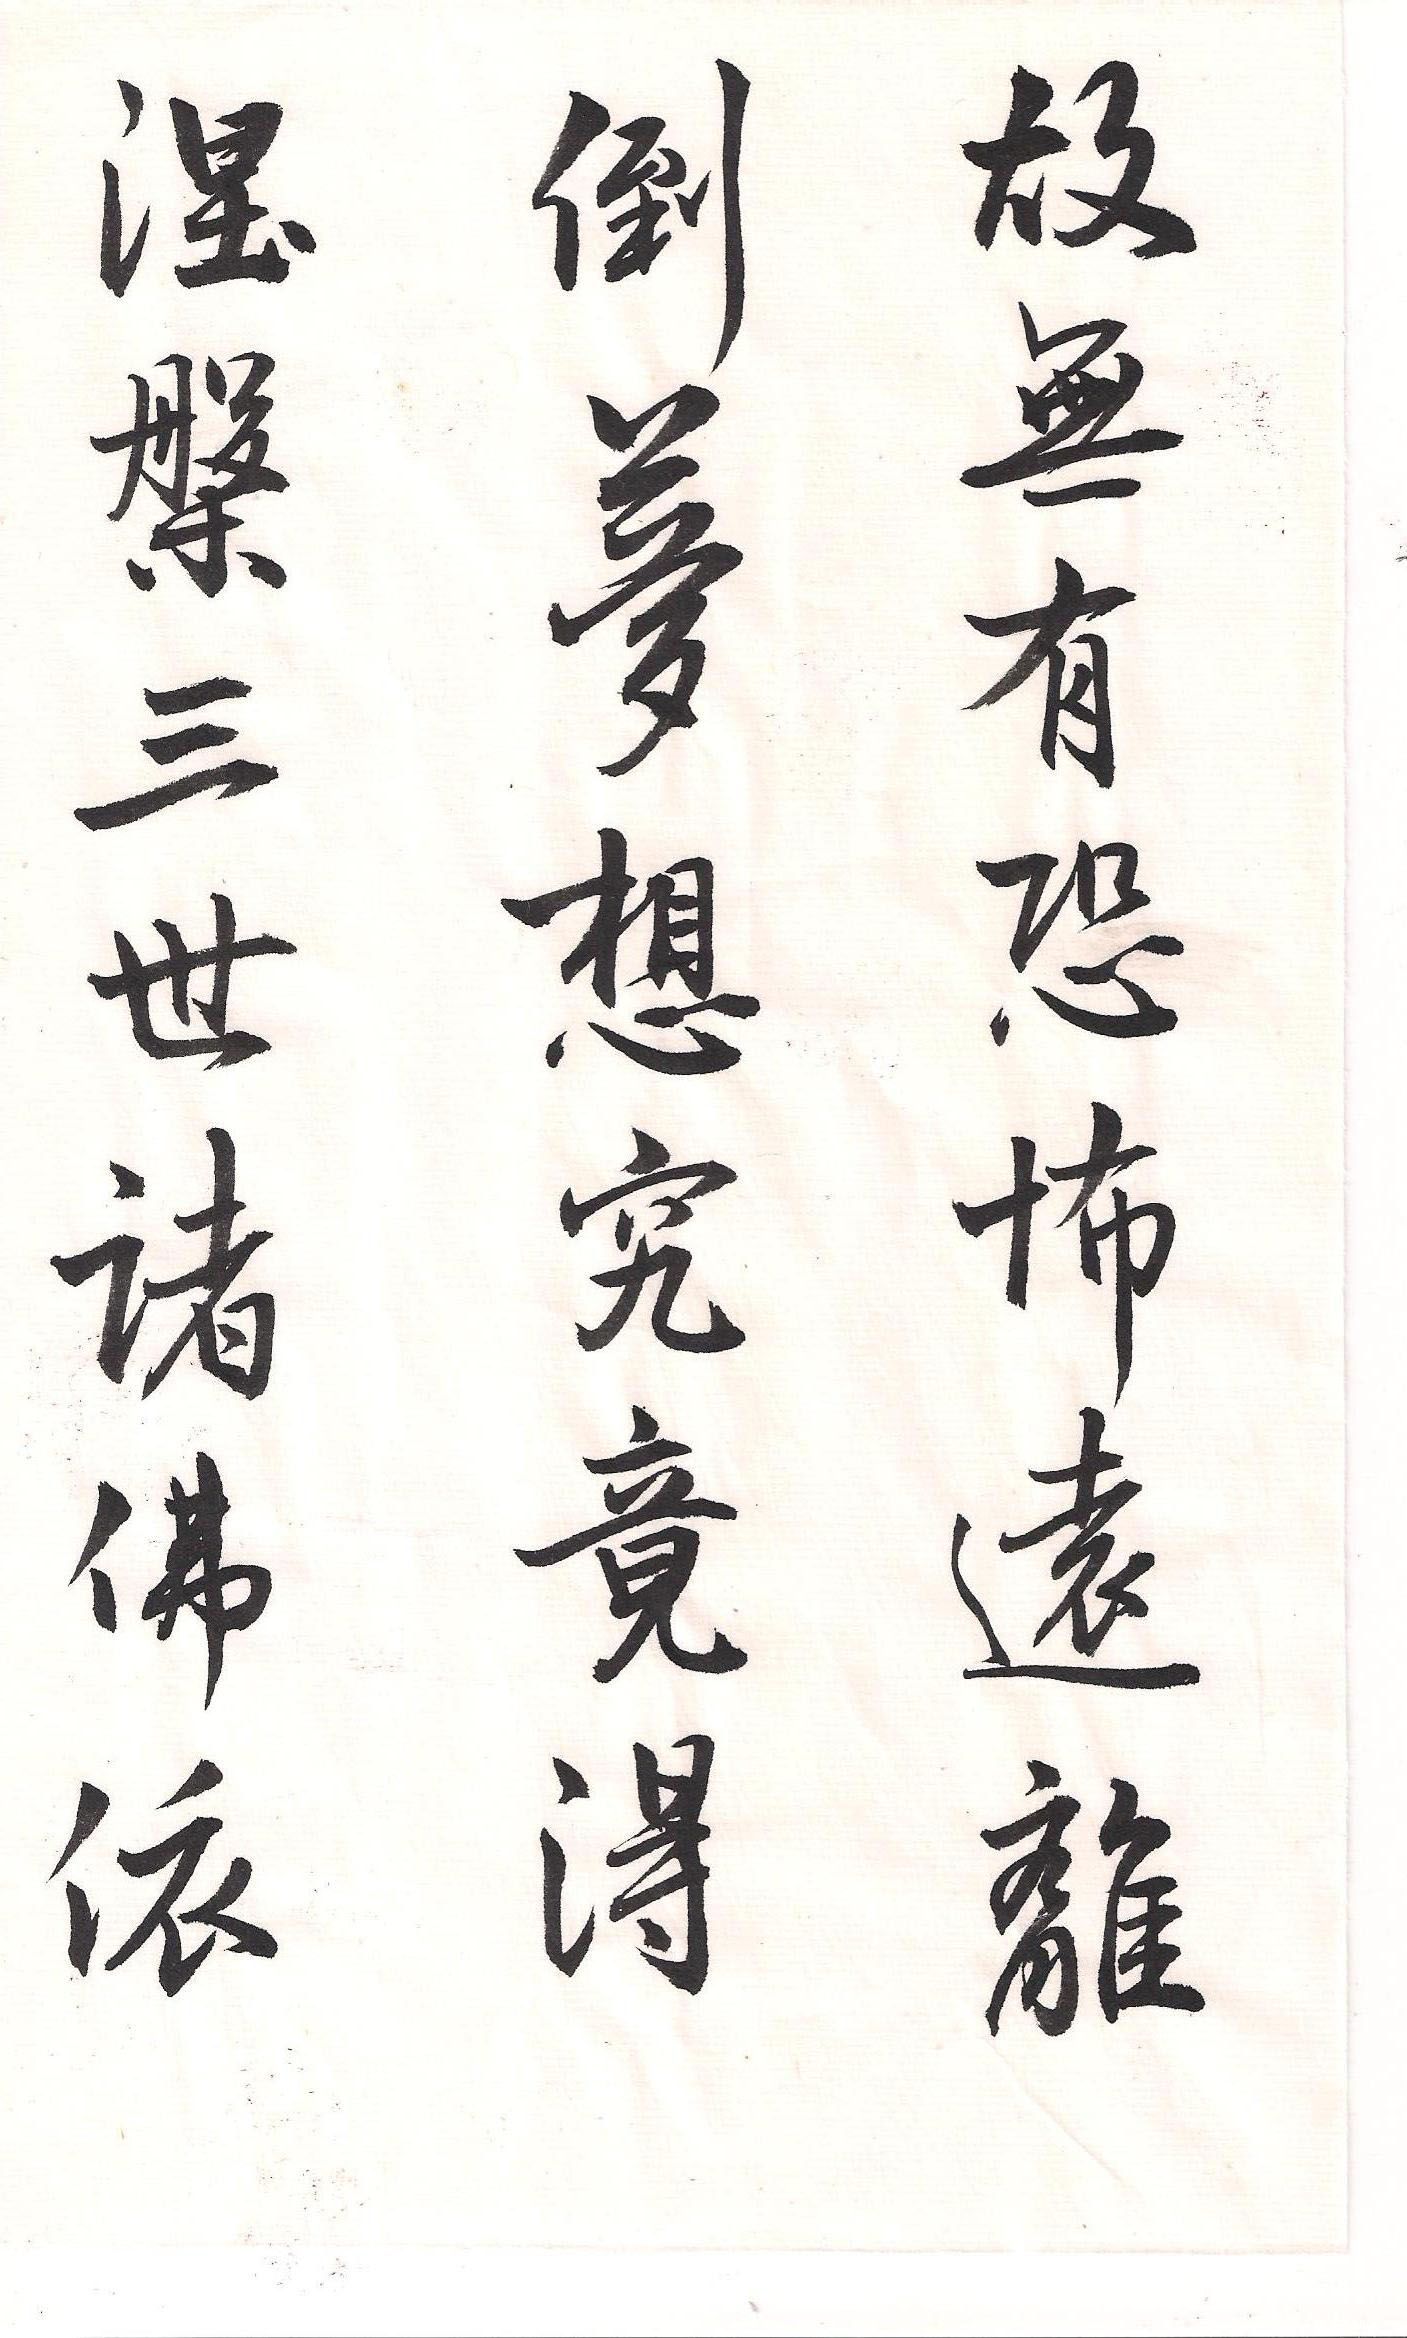 故無有恐怖遠離
倒夢想究竟得
涅槃三世諸佛依